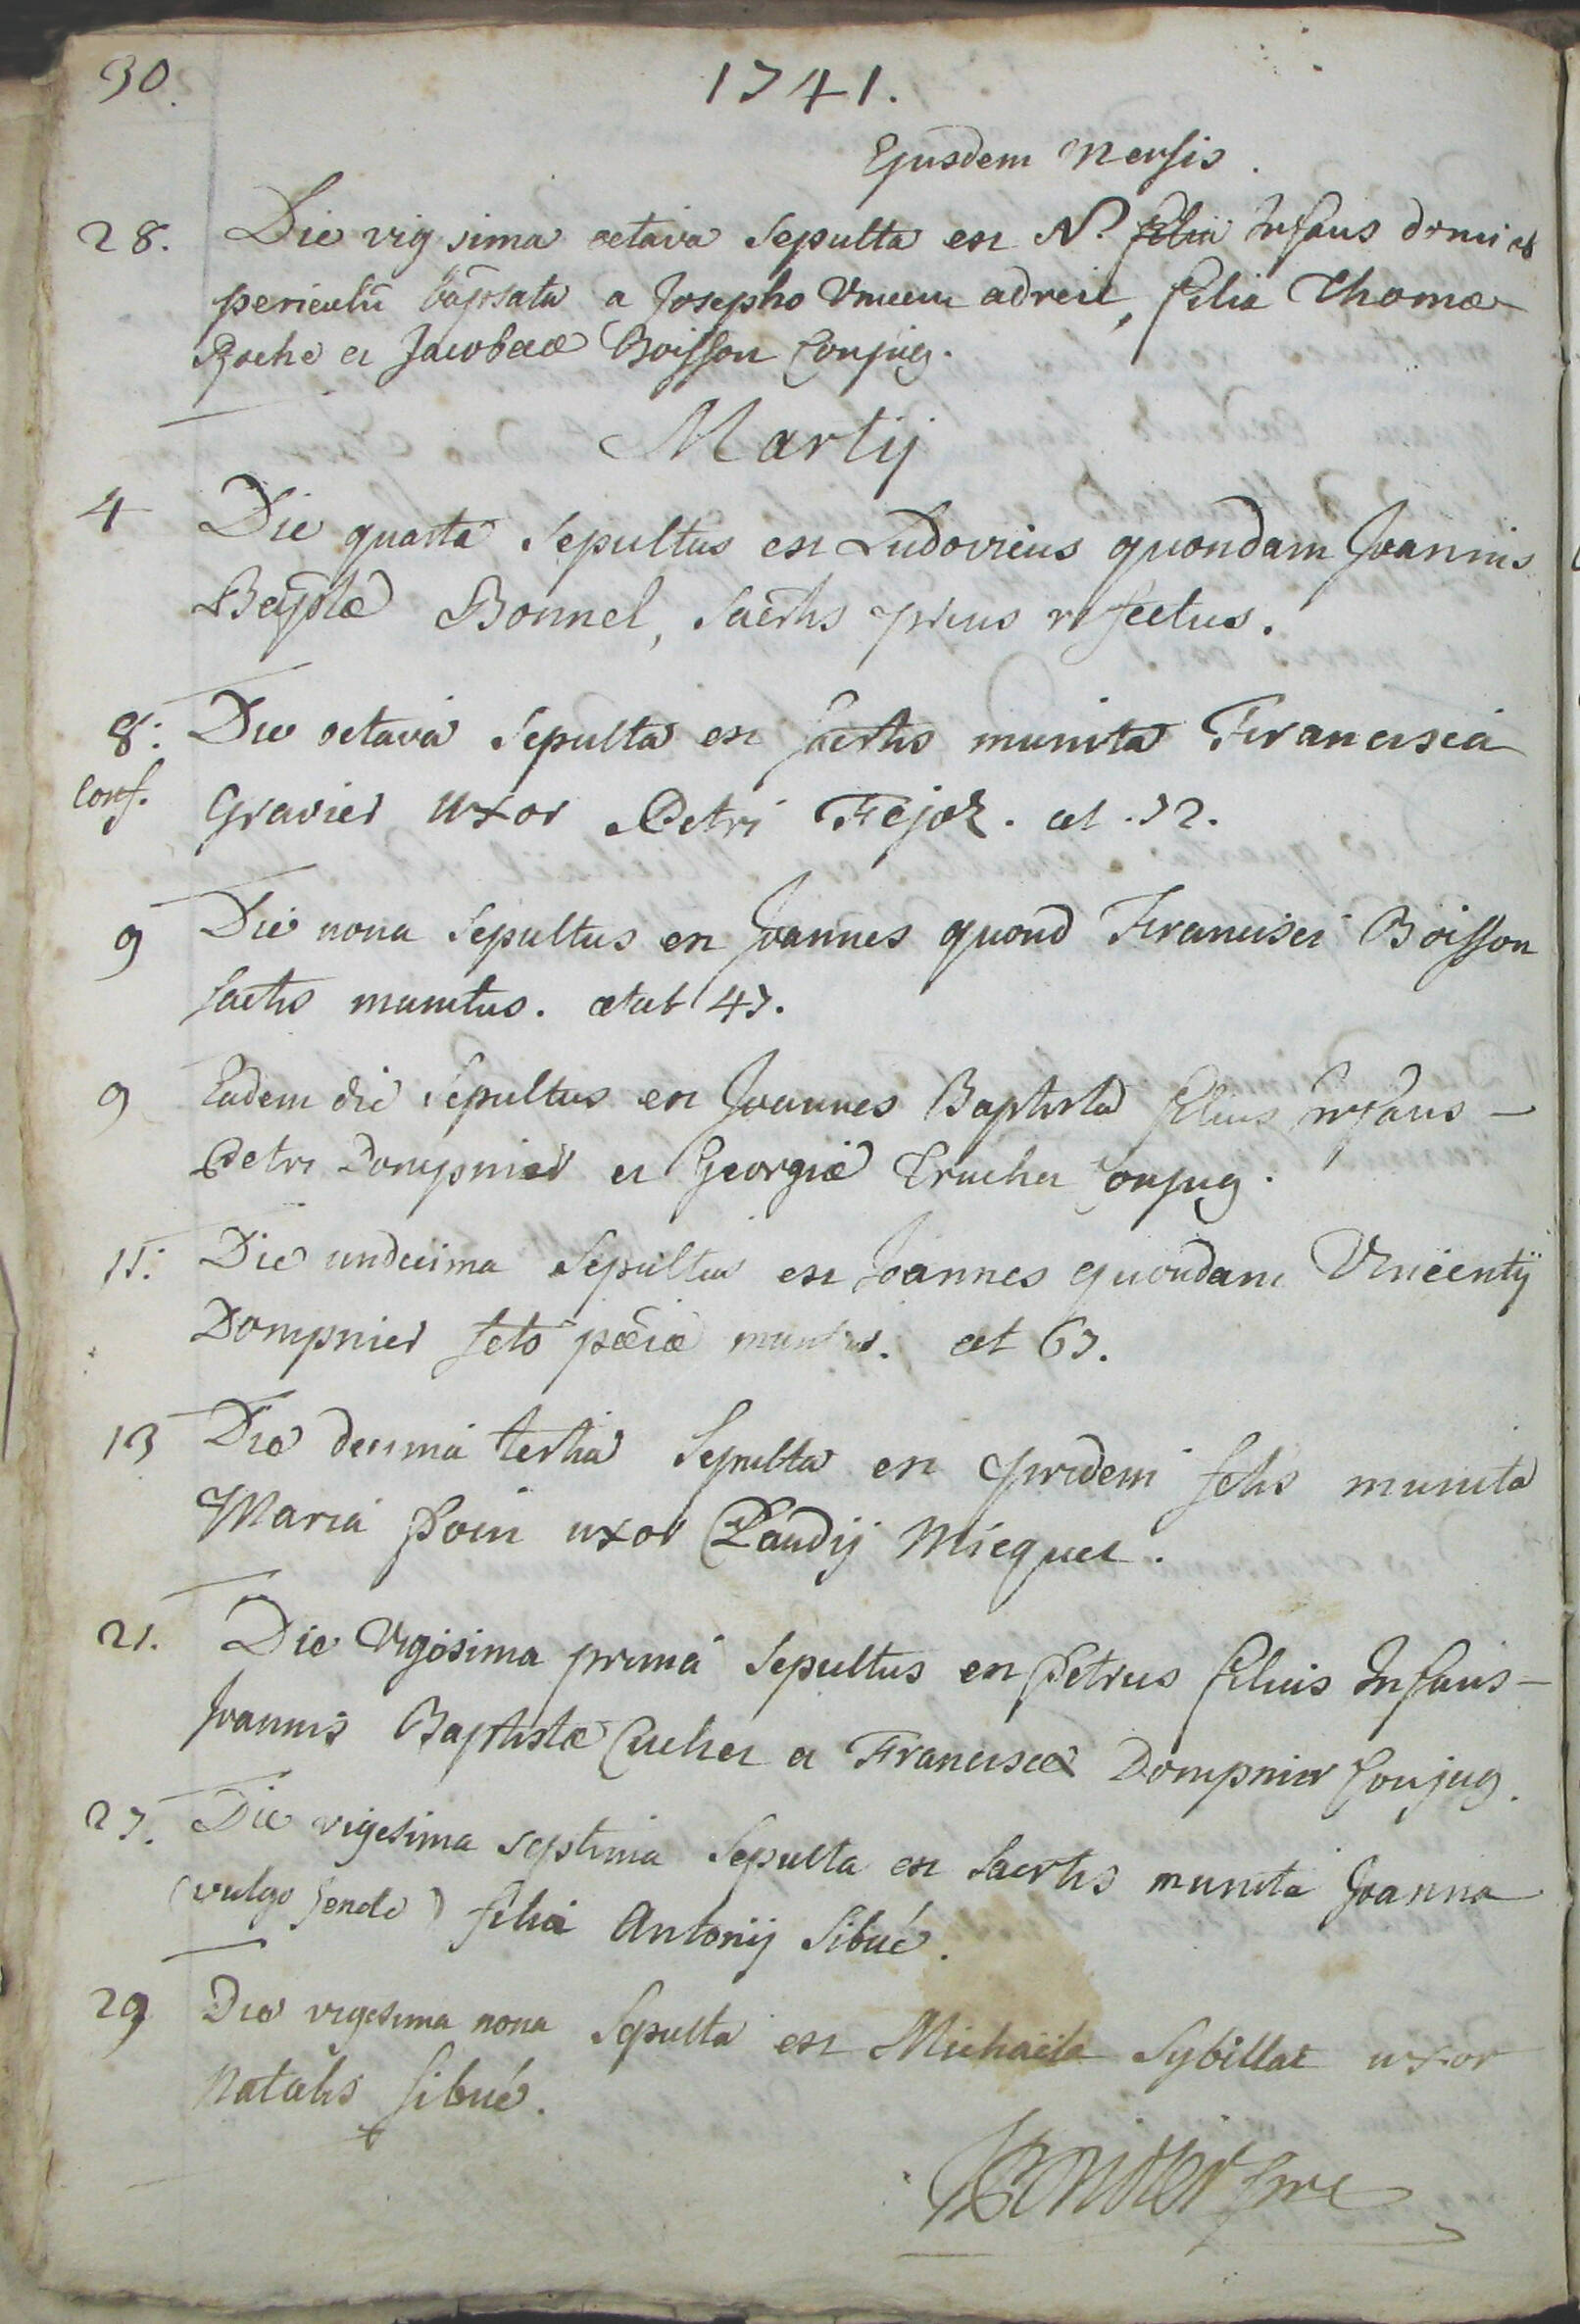 30.
1741.
Ejusdem Mensis.
28. Die vigesima octava Sepulta est N.ᵃ filia Infans domi ob
periculũ bap̃sata a Josepho Vincen adreit, filia Thomæ
Roche et Jacobeæ Boisson Conjug.
Martij
4 Die quarta Sepultus est Ludovicus quondam Joannis
Bap̃tæ Bonnel, sacrtis prius refectus.
8. Die octava Sepulta est sacrtis munita Francisca
Conf. Gravier uxor Petri Fejoz. æt. 72.
9 Die nona Sepultus est Joannes quond Francisci Boisson
sactis munitus. ætat 47.
9 Eadem die Sepultus est Joannes Baptista filius infans
Petri Dompnier et Georgiæ Truchet conjug.
11. Die undecima Sepultus est Joannes quondam Vincentij
Dompnier scto pœ̃iæ munitus. æt 67.
13 Die decima tertia Sepulta est pridem sctis munita
Maria Poin uxor Claudij Micquet.
21. Die Vigesima prima Sepultus est Petrus filius Infans
Joannis Baptistæ Cuchet et Franciscæ Dompnier Conjug.
27. Die vigesima septima Sepulta est sacrtis munita Joanna
(vulgo Jende) filia Antonij Sibué.
29 Die vigesima nona Sepulta est Michaela Sybillat uxor
Natalis Sibué.